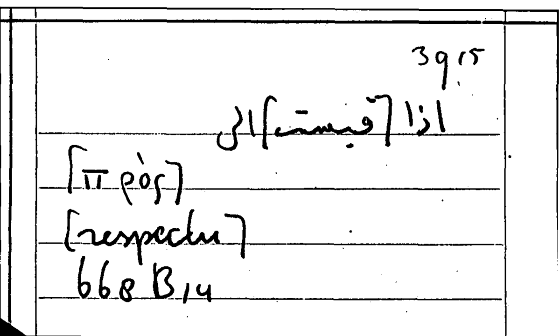 39,15
اذا [قيست] الى
[πρὸς]
[respectu]
668 B 14